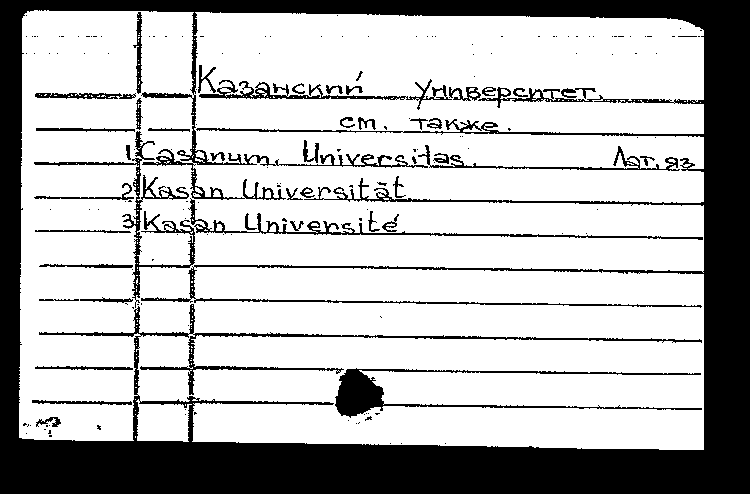 Казанский университет.
см. также.
1. Casanum. Universitas. Лат. яз
2 Kasan Universität
3 Kasan Université